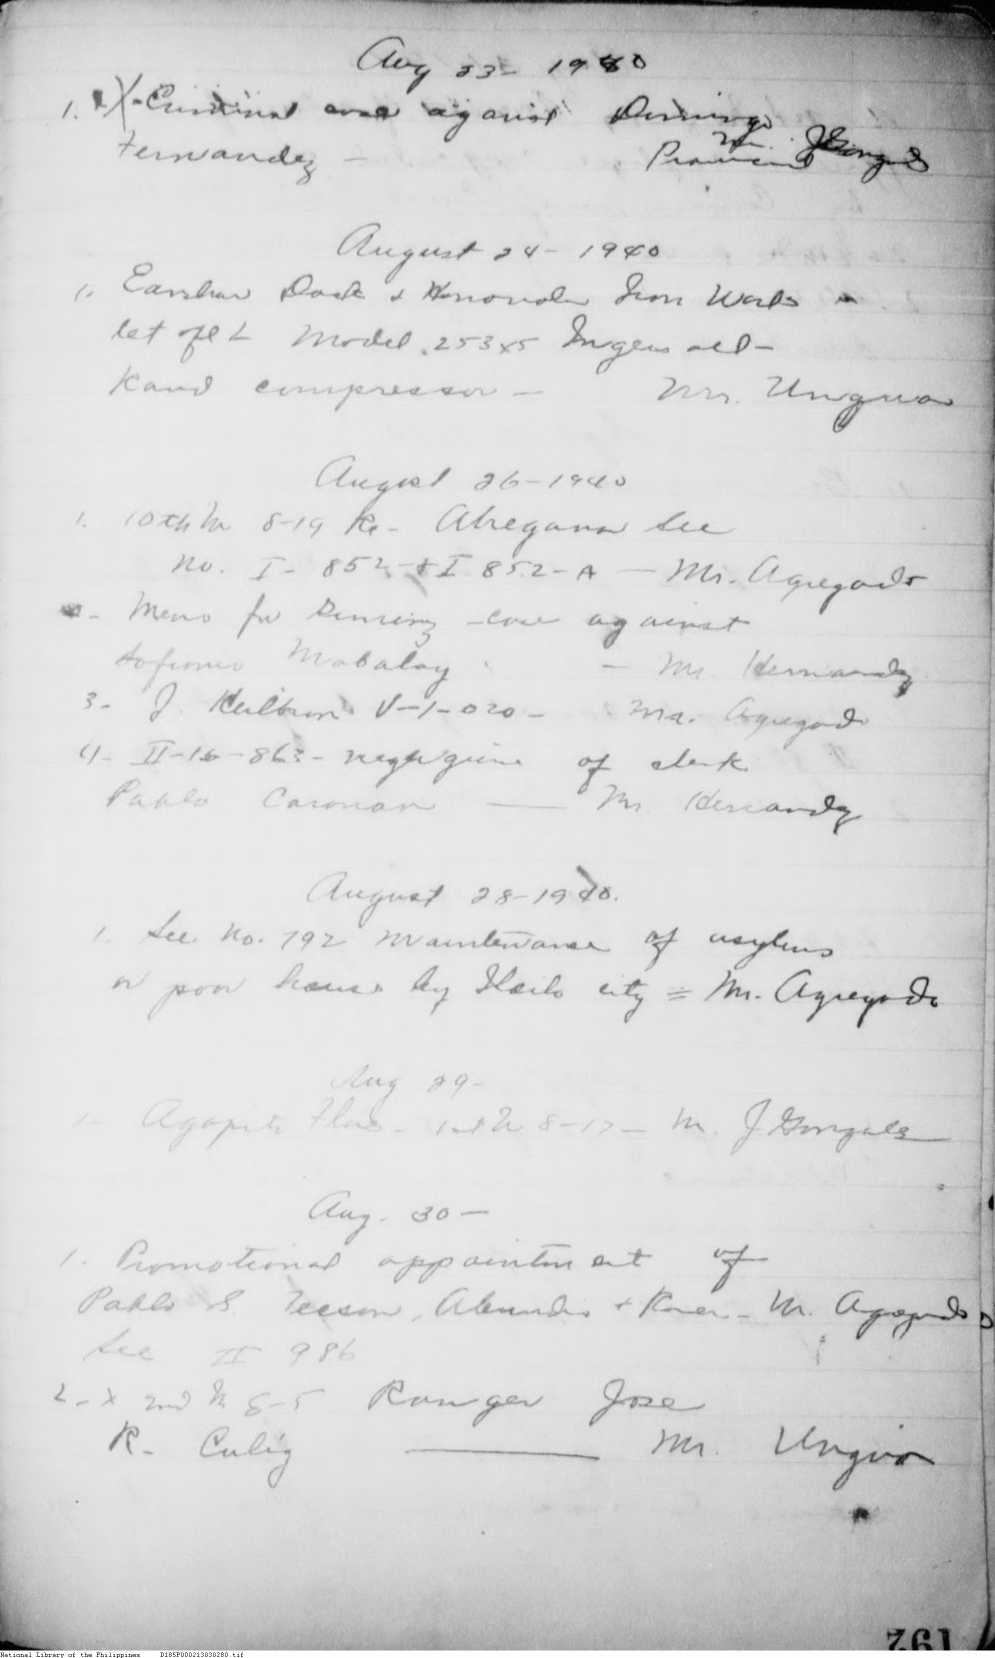 Aug 23 - 1940
1. X - Criminal case against Domingo
Fernandez - Mr. J Gonzales
August 24 - 1940
1. Earnshaw Dock & Honolulu Iron Works
let Model 25345
Rand compressor - Mr. Unguia
August 26 - 1940
1. 10th In 8-19 Re - See
No. I - 852 - & I 852 - A - Mr. Agregado
Memo for - case against
Mabalay - Mr. Hernandez
3 - J. V-1-020 - Mr. Agregado
4 - II - 16 - 863 - of clerk
Pablo Caronan - Mr Hernandez
August 28 - 1940.
1. See No. 792 Maintenance of asylums
or poor house by Iloilo city = Mr. Agregado
Aug 29 -
1 - Agapito - 1st In 8-17 - Mr. J Gonzales
Aug. 30 -
1. Promotional appointment of
Pablo S. Tecson, + - Mr. Agregado
See II 986
2 - x 2nd In 8-5 Ranger Jose
R. Culig - Mr. Unguia
761
National Library of the Philippines D185P000213030280.tif